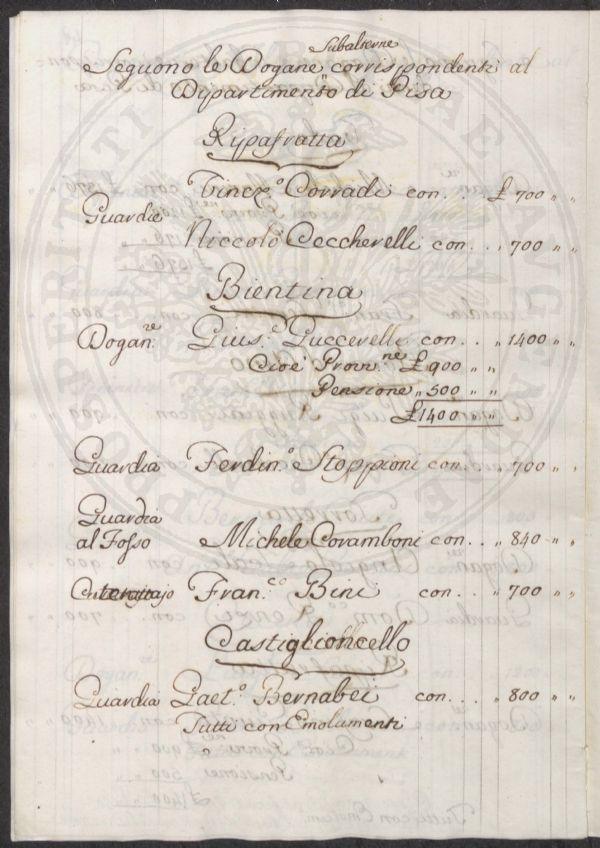 Subalterne
Seguono le Dogane corrispondenti al
Dipartimento di Pisa
Ripafratta
Vincz.º Corradi con... £ 700 " "
Guardie
Niccolò Ceccherelli con... " 700 " "
Bientina
Dogan.re Gius.e Guccerelli con... " 1400 " "
Cioè Provv.ne £ 900 " "
Pensione " 500 " "
£ 1400 " "
Guardia Ferdin.º Stoppioni con... " 700 " "
Guardia
al Fosso Michele Coramboni con... " 840 " "
Fran.co Bini con... " 700 " "
Castiglioncello
Guardia Gaet.º Bernabei con... " 800 " "
Tutti con Emolumenti